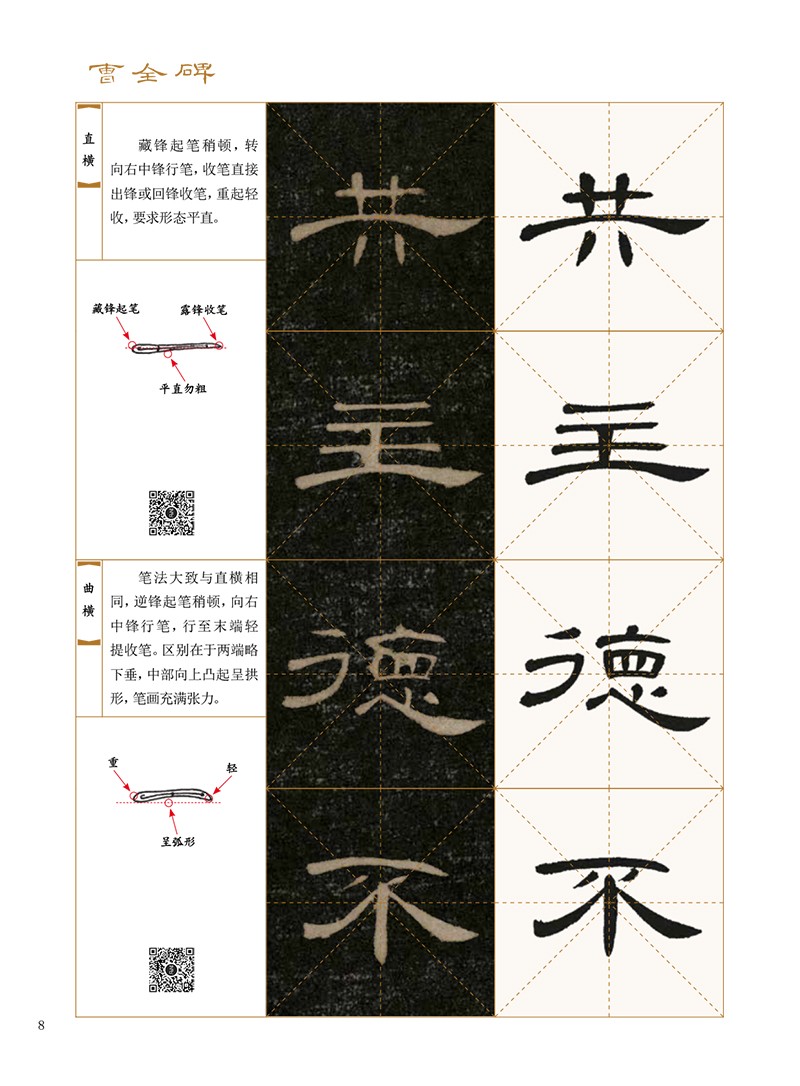 曹全碑
直横
藏锋起笔稍顿，转
向右中锋行笔，收笔直接
出锋或回锋收笔，重起轻
收，要求形态平直。
藏锋起笔
露锋收笔
平直勿粗
共 共
主 主
曲横
笔法大致与直横相
同，逆锋起笔稍顿，向右
中锋行笔，行至末端轻
提收笔。区别在于两端略
下垂，中部向上凸起呈拱
形，笔画充满张力。
重
轻
呈弧形
德 德
不 不
8